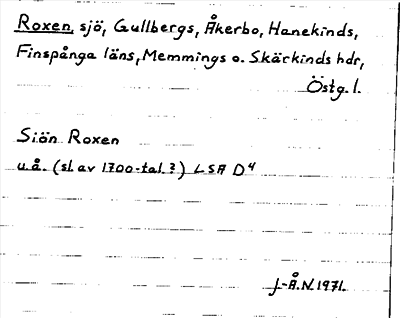 Roxen, sjö, Gullbergs, Åkerbo, Hanekinds,
Finspånga läns, Memmings o. Skärkinds hdr,
Östg. l.
Siön Roxen
u.å. (sl. av 1700-tal.?) LSA D4
J-Å.N. 1971.